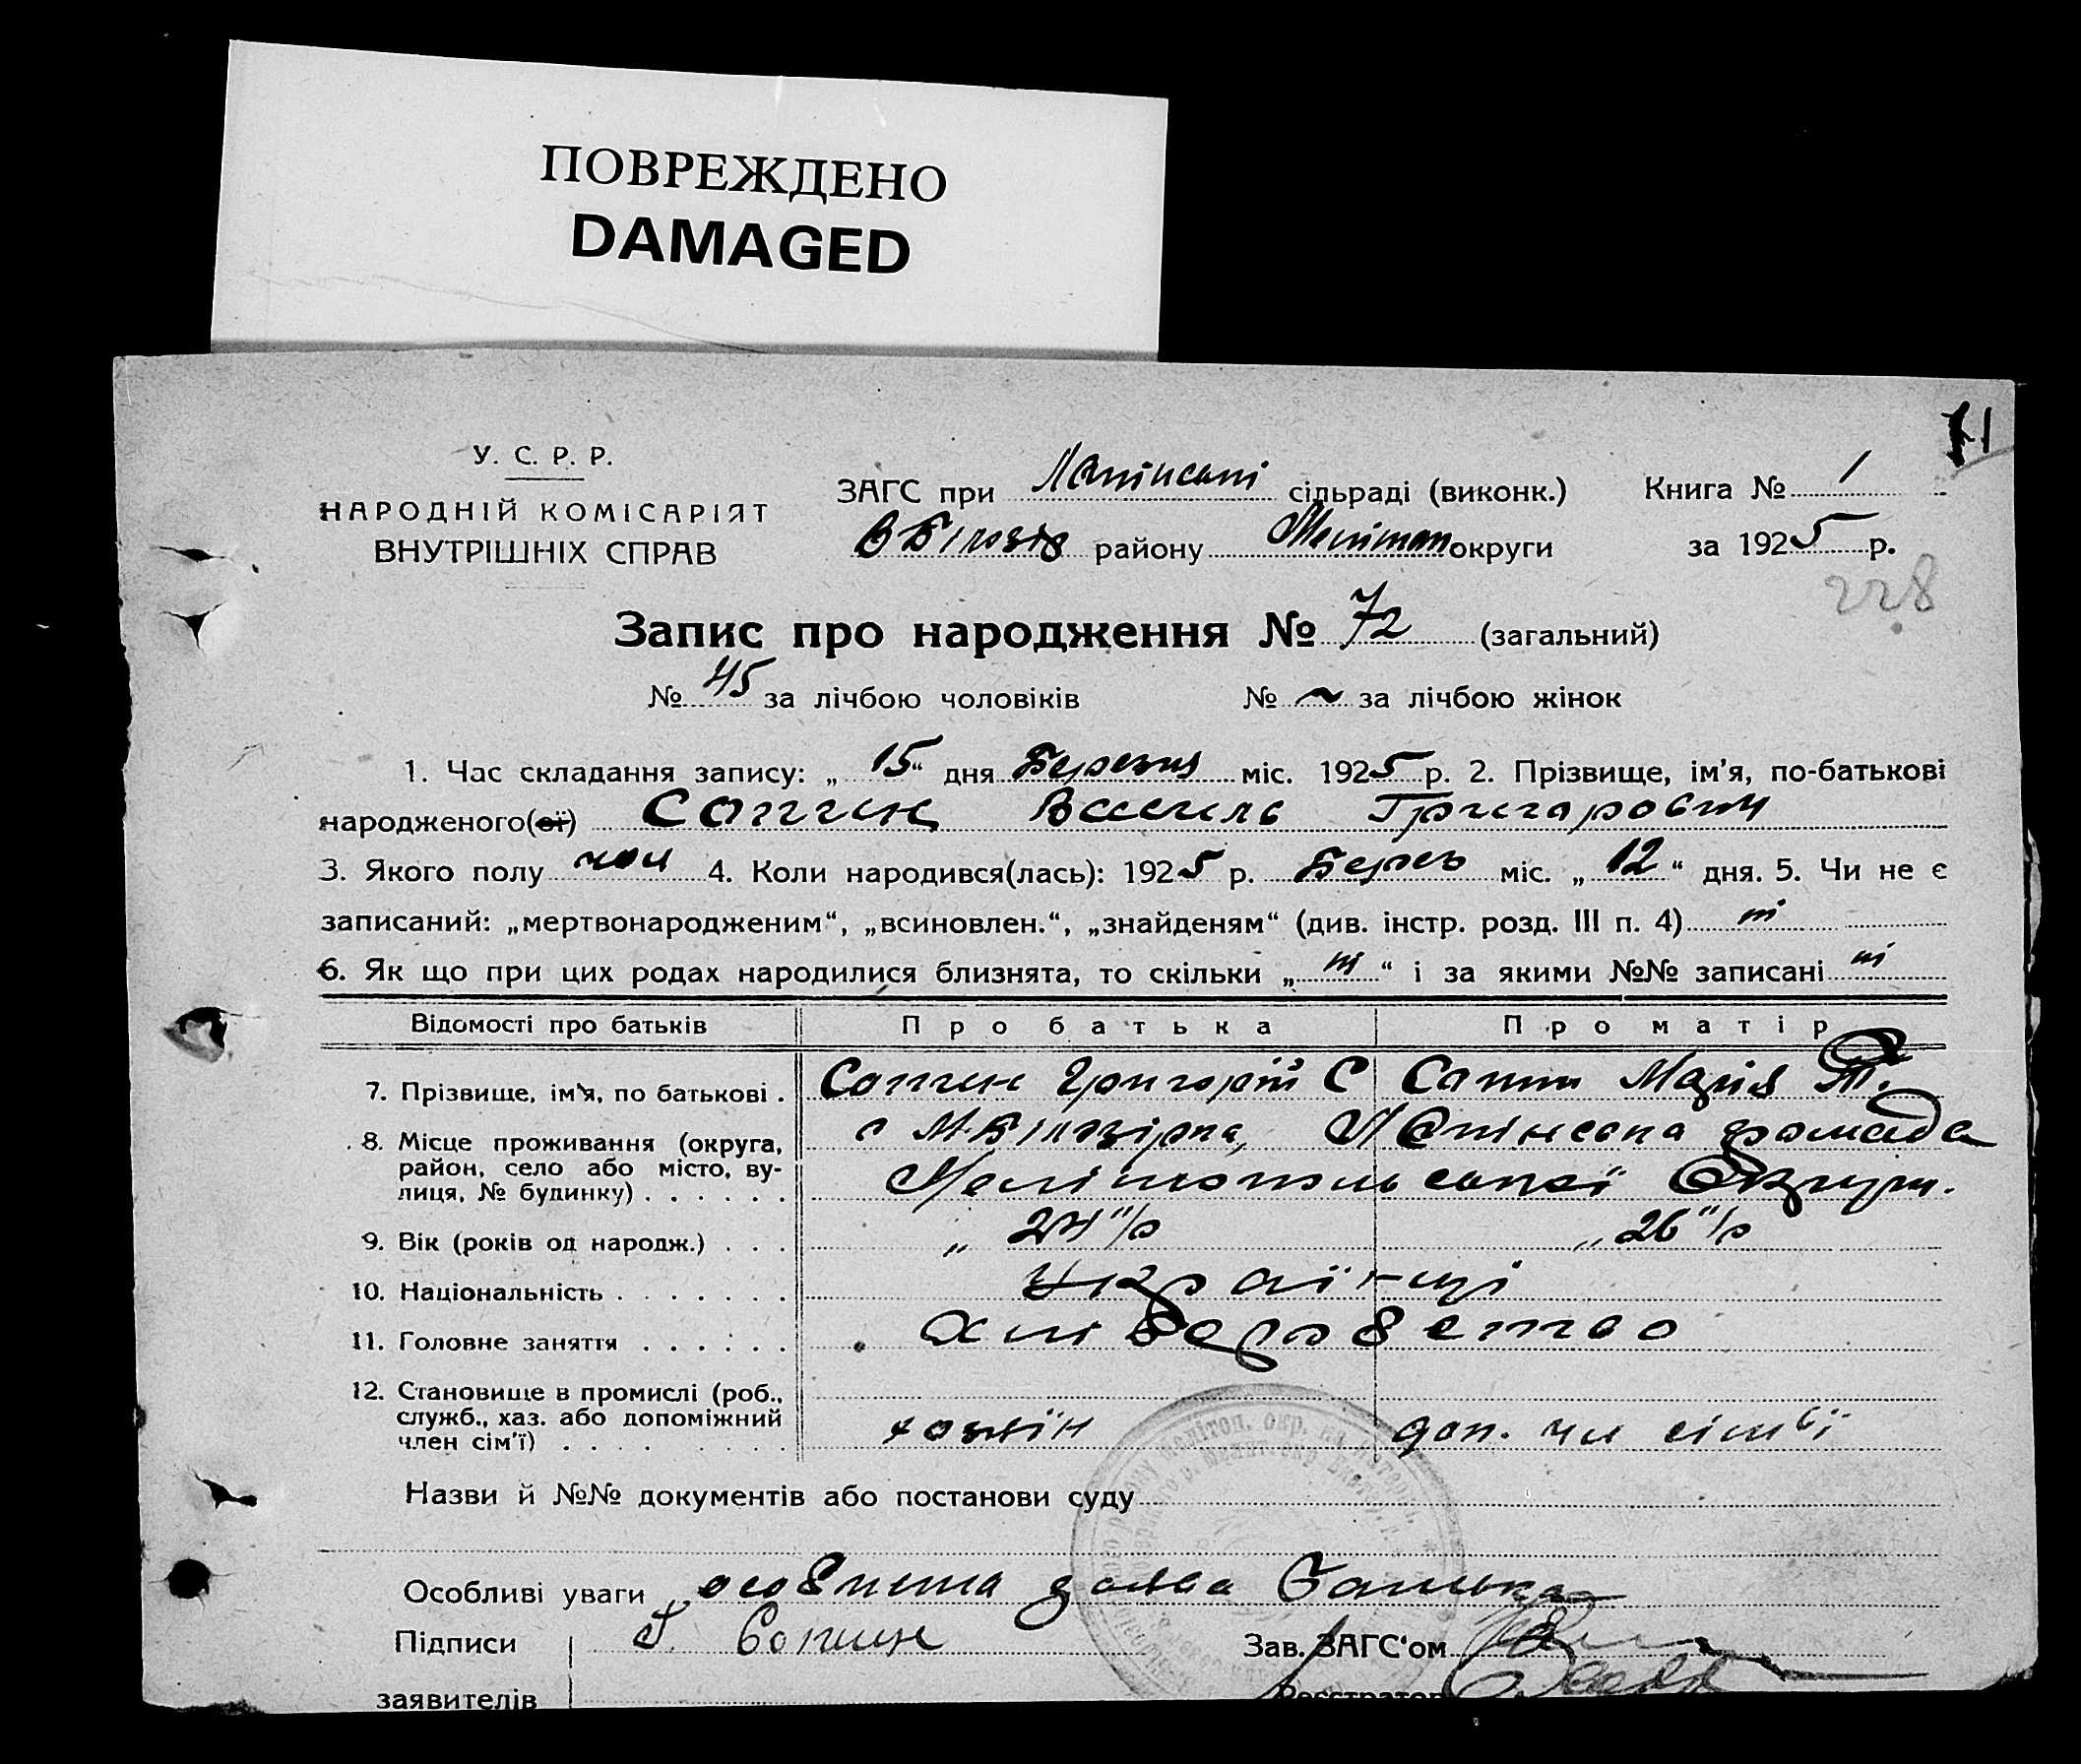 ПОВРЕЖДЕНО
DAMAGED
71
У. С. Р. Р.
НАРОДНІЙ КОМІСАРІЯТ
ВНУТРІШНІХ СПРАВ
ЗАГС при сільраді (виконк.) Книга № 1
району округи за 1925 р.
228
Запис про народження № 72 (загальний)
№ 45 за лічбою чоловіків № за лічбою жінок
1. Час складання запису: „15“ дня Березня міс. 1925 р. 2. Прізвище, ім'я, по-батькові
народженого(ої) Василь Григорович
3. Якого полу чол 4. Коли народився(лась): 1925 р. Берез міс. „12“ дня. 5. Чи не є
записаний: „мертвонародженим“, „всиновлен.“, „знайденям“ (див. інстр. розд. III п. 4) ні
6. Як що при цих родах народилися близнята, то скільки „ні“ і за якими №№ записані ні
Відомості про батьків Про батька Про матір
7. Прізвище, ім'я, по батькові . Григорій С Марія
8. Місце проживання (округа, с М-Білозірка, громада
район, село або місто, ву-
лиця, № будинку) . . . . . . Мелітопольської Округи.
9. Вік (років од народж.) . . . „24“ р „26“ р
10. Національність . . . . . . . Українці
11. Головне заняття . . . . . . Хліборобство
12. Становище в промислі (роб.,
служб., хаз. або допоміжний
член сім'ї) . . . . . . . . . хозяїн доп. чл сімьї
Назви й №№ документів або постанови суду
Особливі уваги особиста заява батька
Підписи Зав. ЗАГС'ом
заявителів Реєстратор